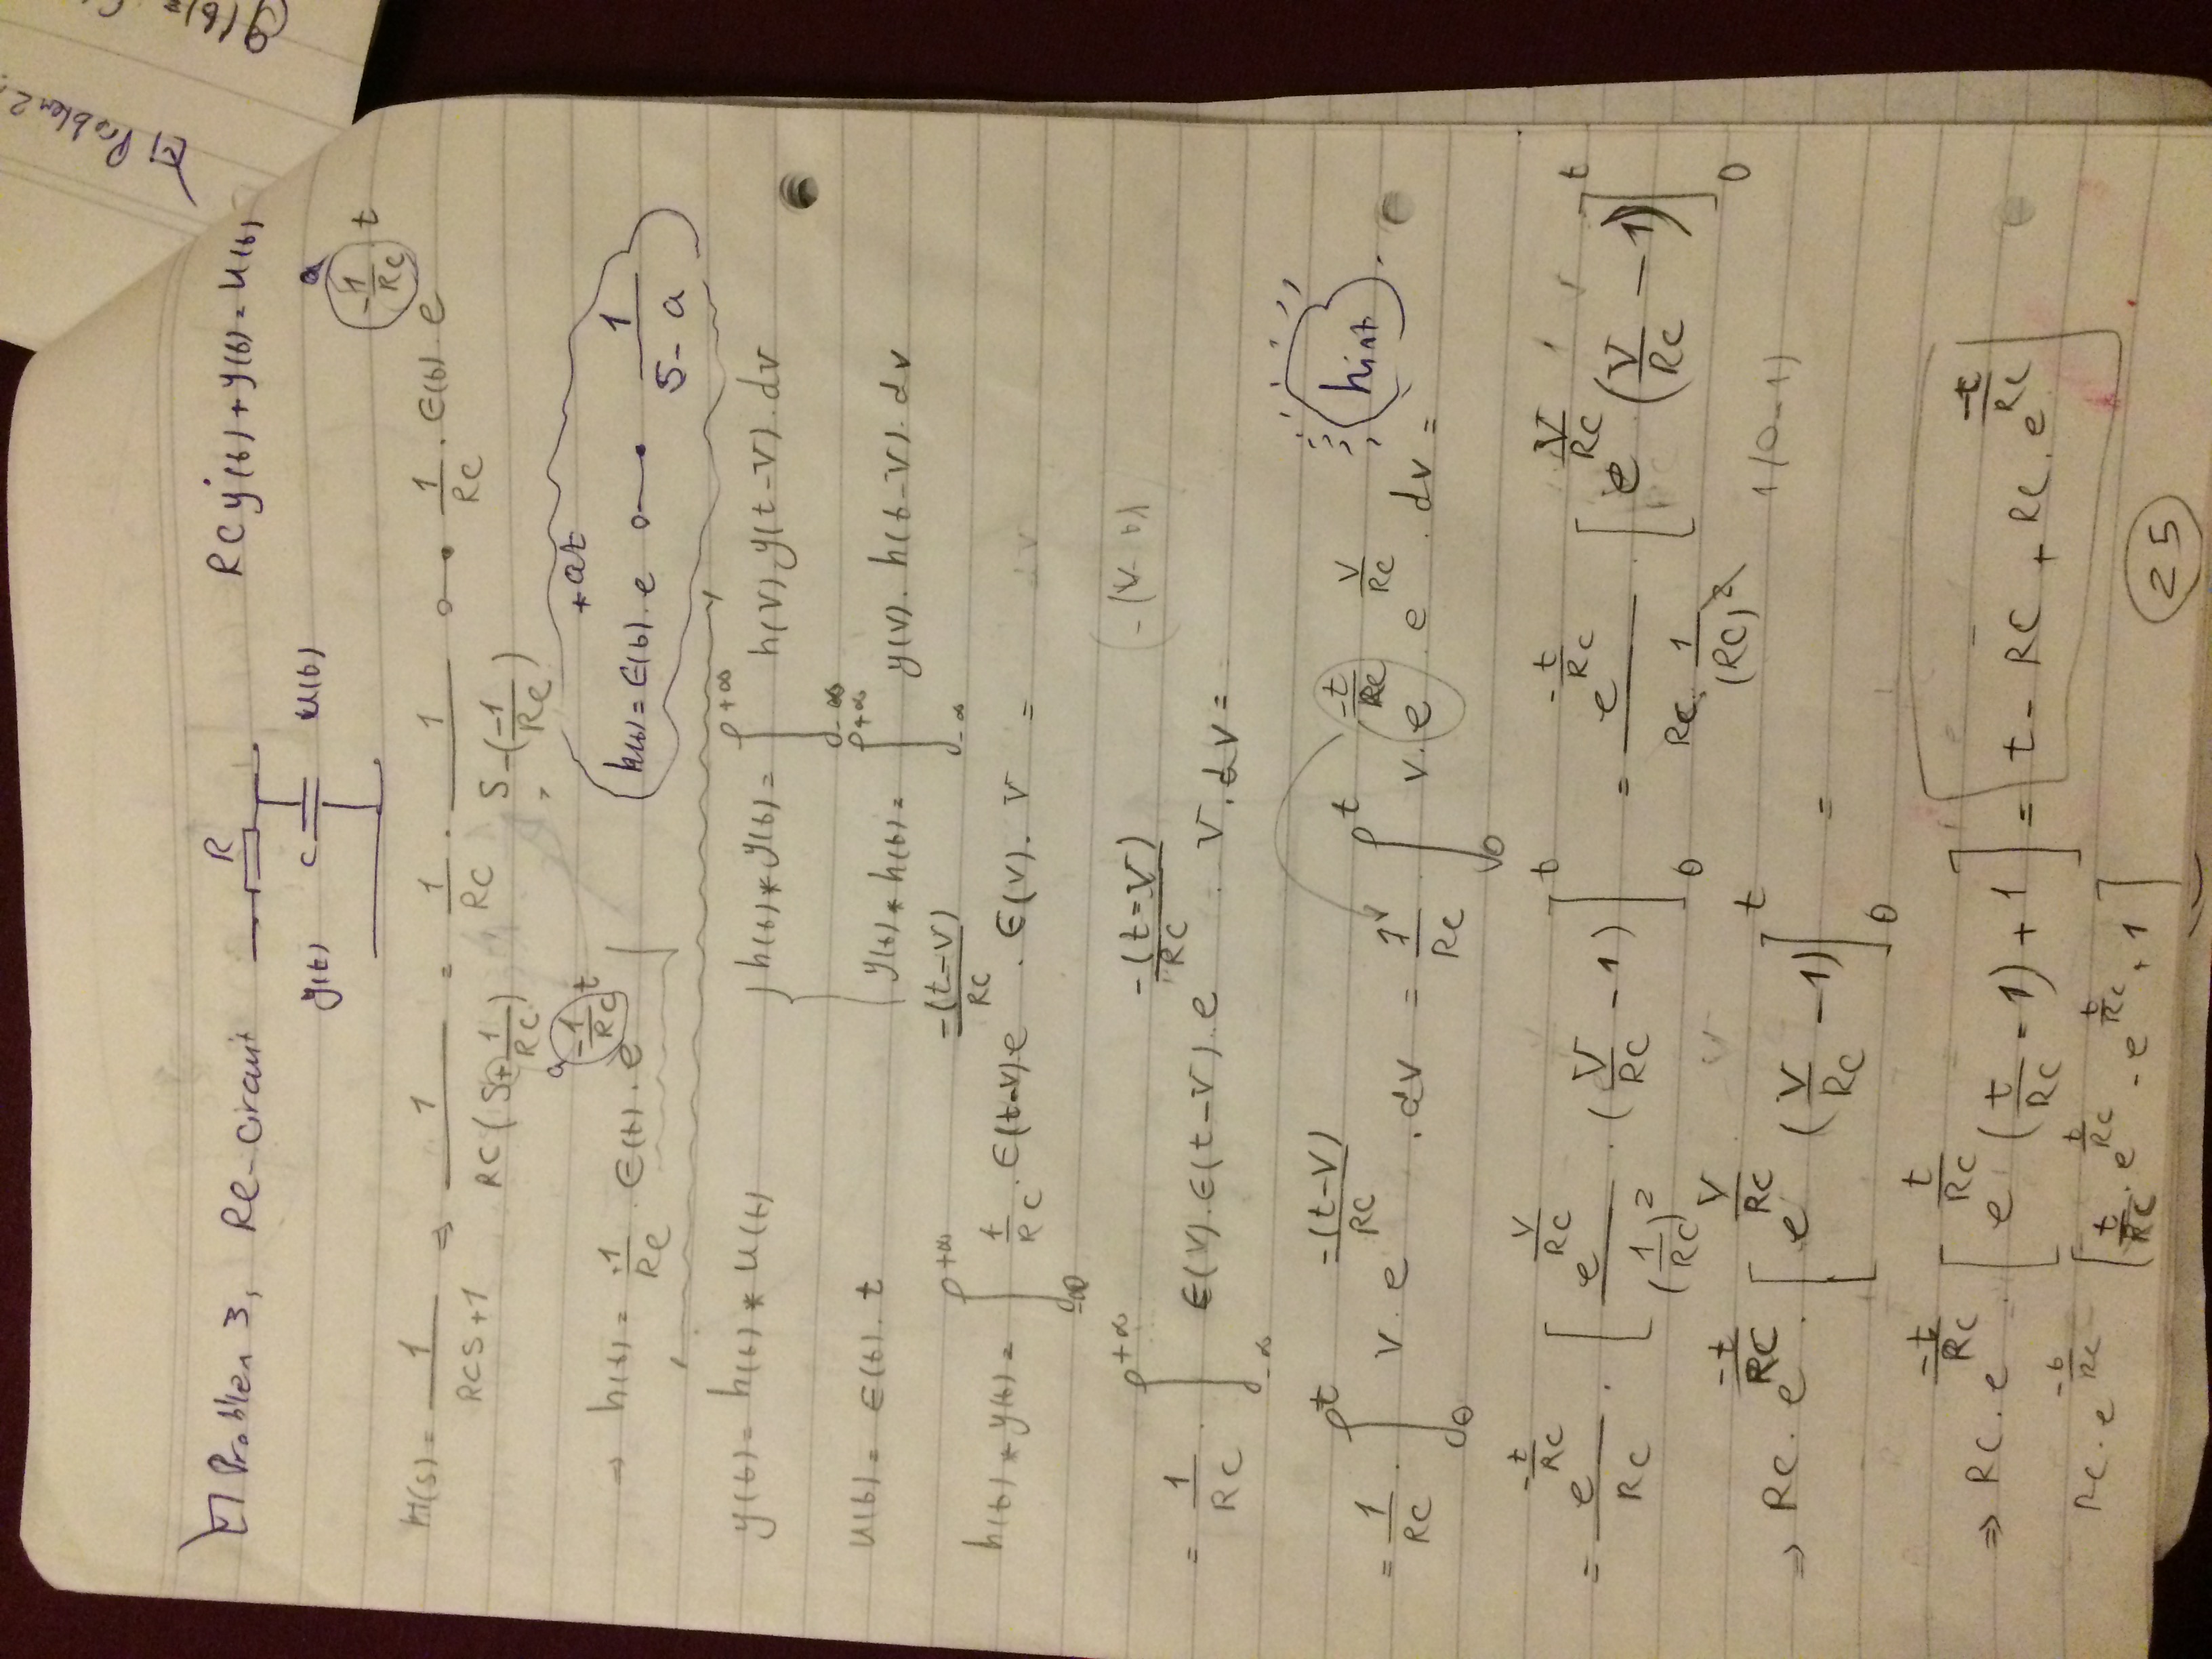 Problem 3, RC-circuit R RC ẏ(t) + y(t) = u(t)
y(t) C u(t)
H(s) = 1/(RCS+1) ⇒ 1/(RC(S+1/RC)) = 1/RC · 1/(S-(-1/RC)) ○—● 1/RC · ϵ(t) · e^(-1/RC t) a
⇒ h(t) = 1/RC · ϵ(t) · e^(-1/RC t) a
h(t) = ϵ(t) · e^(+at) ○—● 1/(S-a)
y(t) = h(t) * u(t) { h(t) * y(t) = ∫_{-∞}^{+∞} h(v) y(t-v) · dv
u(t) = ϵ(t) · t y(t) * h(t) = ∫_{-∞}^{+∞} y(v) · h(t-v) · dv
h(t) * y(t) = ∫_{-∞}^{+∞} 1/RC · ϵ(t-v) · e^(-(t-v)/RC) · ϵ(v) · v =
= 1/RC · ∫_{-∞}^{+∞} ϵ(v) · ϵ(t-v) · e^(-(t-v)/RC) · v · dv =
= 1/RC · ∫_0^t v · e^(-(t-v)/RC) · dv = 1/RC ∫_0^t v · e^(-t/RC) · e^(v/RC) · dv = hint
= e^(-t/RC)/RC · [ e^(v/RC)/(1/RC)^2 · (v/RC - 1) ]_0^t = e^(-t/RC)/(RC · 1/(RC)^2) · [ e^(v/RC) · (v/RC - 1) ]_0^t
⇒ RC · e^(-t/RC) · [ e^(v/RC) (v/RC - 1) ]_0^t = 1(0-1)
⇒ RC · e^(-t/RC) · [ e^(t/RC) (t/RC - 1) + 1 ] = t - RC + RC · e^(-t/RC)
RC · e^(-t/RC) [ t/RC · e^(t/RC) - e^(t/RC) + 1 ]
25
Problem 2
y(t) =